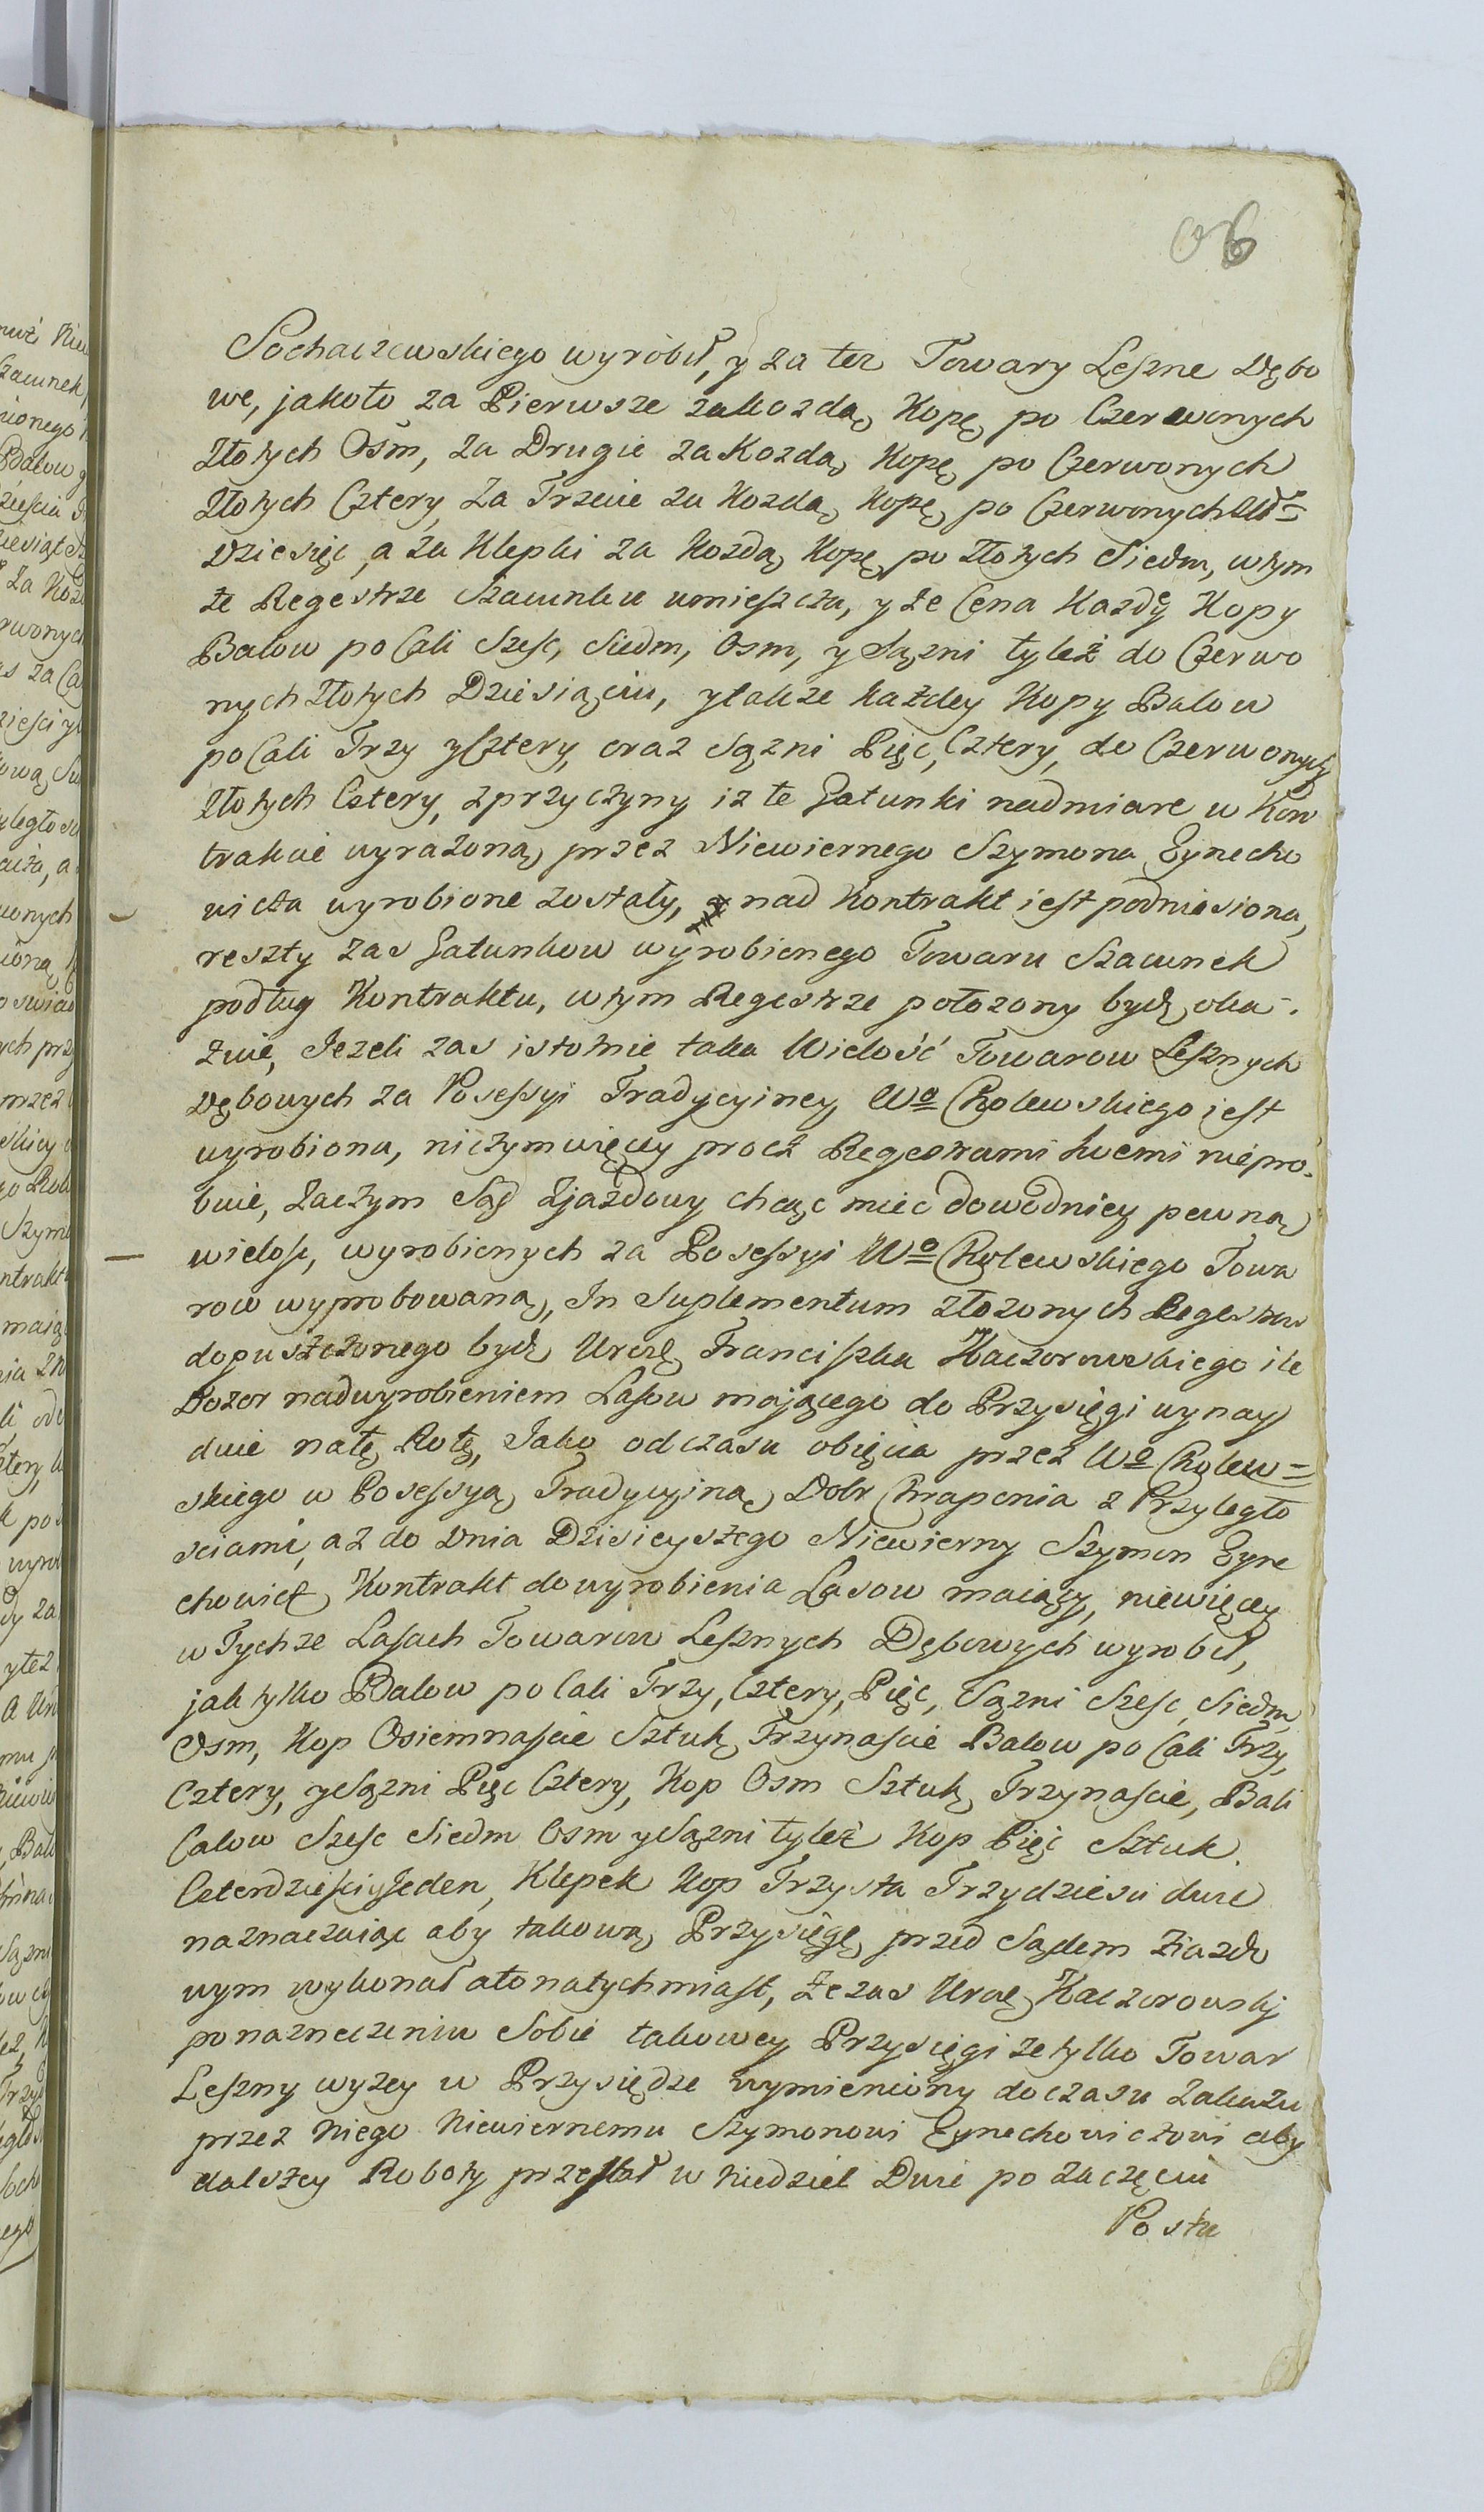 6
Sochaczewskiego wyrobił, y za też Towary Leszne Dębo
we, jakoto za Pierwsze zakozdą Kopę po Czerwonych
Złotych Ośm, za Drugie za Kozdą Kopę po Czerwonych
Złotych Cztery, Za Trzecie za Kozdą Kopę po Czerwonych Zł=
Dziesięć, a za Klepki za Kozdą Kopę po Złotych Siedm, wtym
że Regestrze Szacunku umieszcza, y że Cena Kazdę Kopy
Balow po Cali Szesc, Siedm, Osm, y Sązni tyleż do Czerwo
nych Złotych Dziesiąciu, ytakze każdey Kopy Balow
po Cali Trzy y Cztery, oraz Sązni Pięc, Cztery, do Czerwonych
Złotych Cztery, zprzyczyny iz te Gatunki nadmiarę w Kon
trakcie wyrażoną przez Niewiernego Szymona Eynecho
wicza wyrobione zostały, nad Kontrakt iest podniesiona,
reszty zas Gatunkow wyrobionego Towaru Szacunek
podług Kontraktu, wtym Regestrze położony bydź oka-
zuie, Jezeli zas istotnie taka Wielość Towarow Lesznych
Dębowych za Possessyi Tradycyiney Wo Cholewskiego iest
wyrobiona, niczymwięcey procz Regestrami swemi niepro-
buie, Zaczym Sąd Zjazdowy chcąc miec dowodniey pewną
wielosc, wyrobionych za Possessyi Wo Cholewskiego Towa
row wyprobowaną, In Suplementum złożonych Regestrow
dopuszczonego bydź Urodz Franciszka Kaczorowskiego ile
Dozor nadwyrobieniem Lasow mającego do Przysięgi wynay
duie natę Rotę, Jako odczasu obięcia przez Wo Cholew=
skiego w Possessyą Tradycyiną Dobr Chrapenia z Przyległo
sciami, az do Dnia Dzisieyszego Niewierny Szymon Eyne
chowicz Kontrakt dowyrobienia Lasow maiący, niewięcey
w Tychze Lasach Towarow Lesznych Dębowych wyrobił,
jak tylko Balow po Cali Trzy, Cztery, Pięc, Sązni Szesc, Siedm,
Osm, Kop Osiemnascie Sztuk Trzynascie Balow po Cali Trzy,
Cztery, y Sązni Pięc Cztery, Kop Osm Sztuk Trzynascie, Bali
Calow Szesc Siedm Osm y Sązni tyleż Kop Pięć Sztuk
Czterdziesci y Jeden, Klepek Kop Trzysta Trzydziesci dwie
naznaczaiąc aby takową Przysięgę przed Sądem Ziazdo
wym wykonał atonatychmiast, Ze zas Urodz Kaczorowski
ponaznaczeniu Sobie takowey Przysięgi ze tylko Towar
Leszny wyzey w Przysiędze wymieniony doczasu Zakazu
przez niego Niewiernemu Szymonowi Eynechowiczowi aby
dalszey Roboty przestał w Niedziel Dwie po zaczęciu
Postu